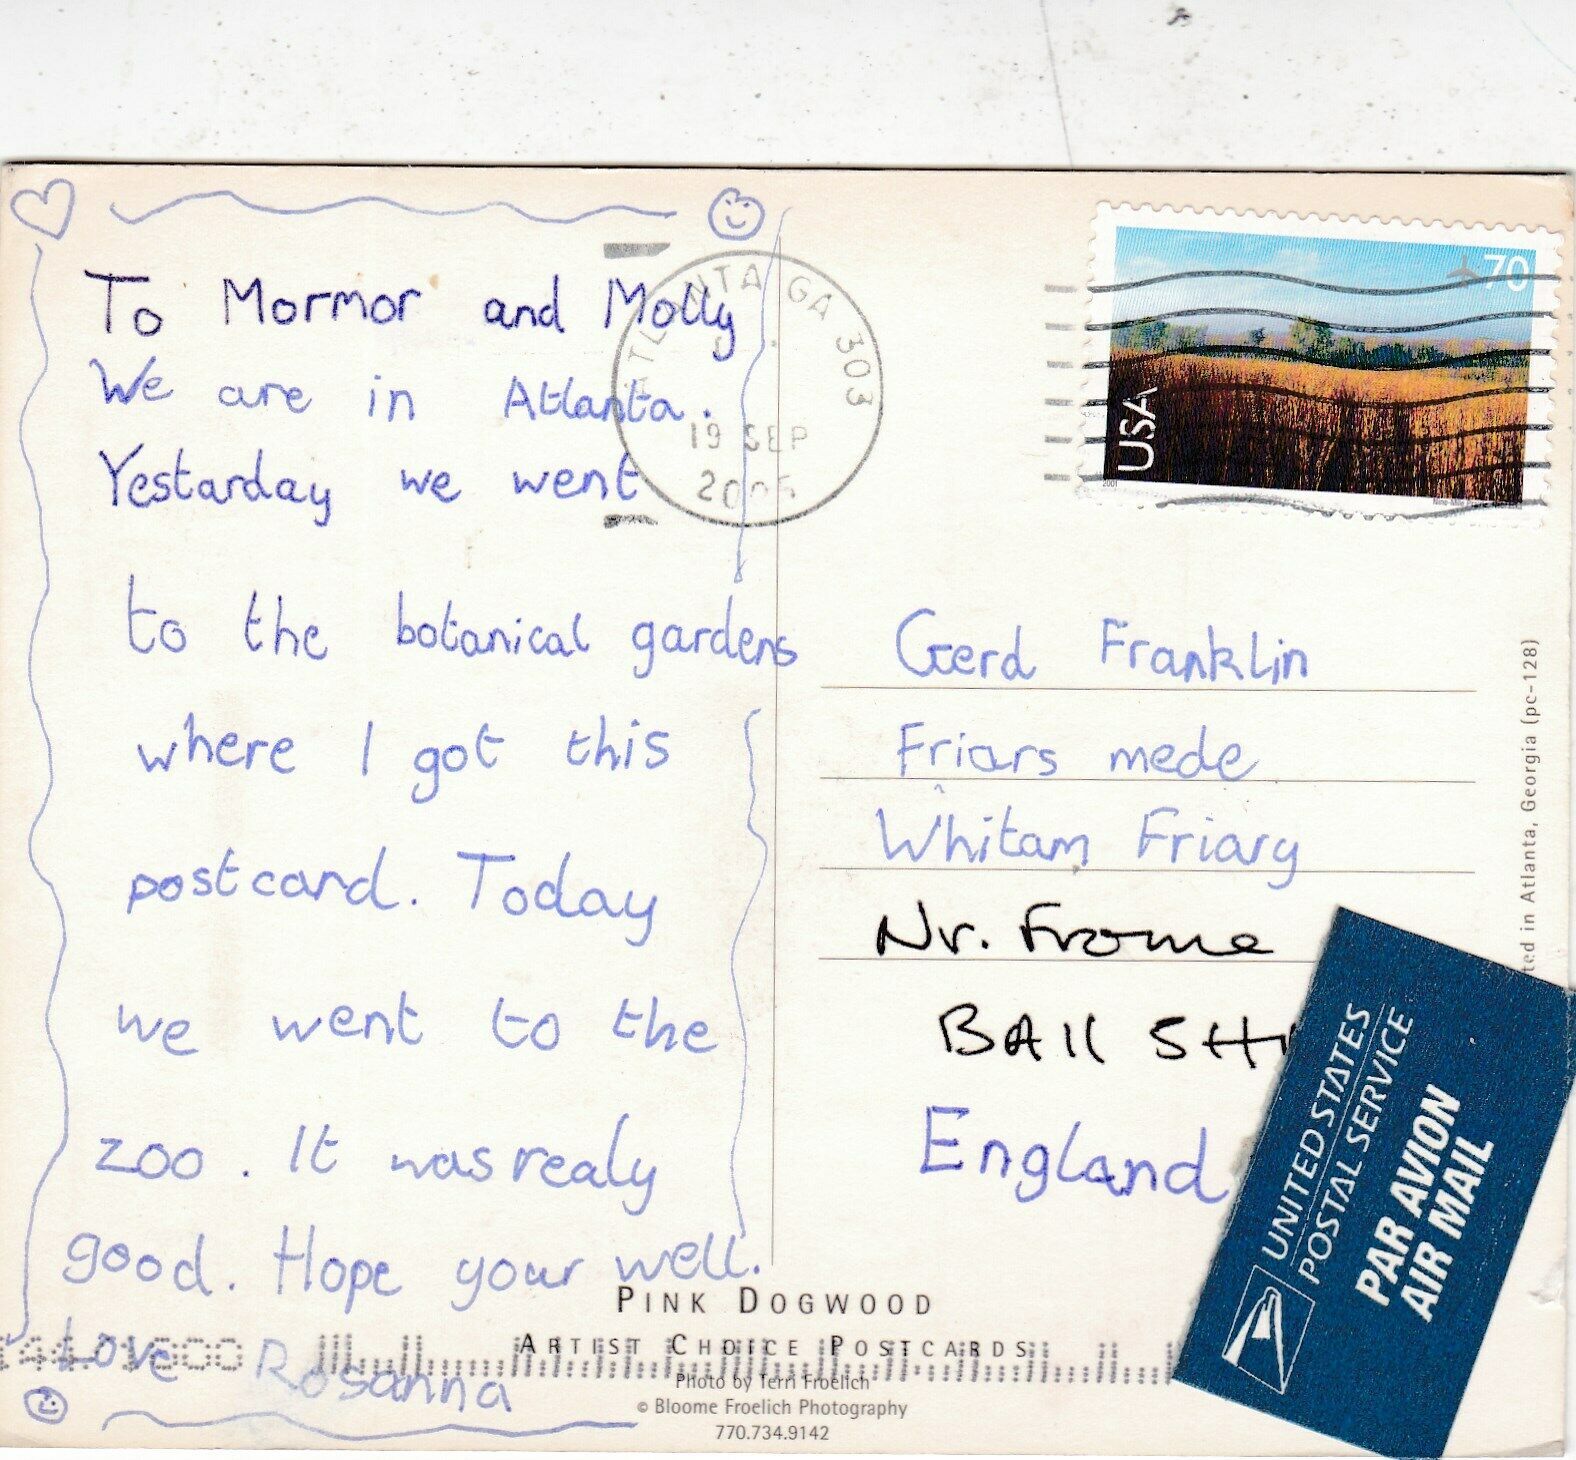 To Mormor and Molly
We are in Atlanta.
Yestarday we went
to the botanical gardens
where I got this
postcard. Today
we went to the
zoo. It was realy
good. Hope your well.
Love Rosanna
ATLANTA GA 303
19 SEP
2005
70
USA
2001
Gerd Franklin
Friars mede
Whitam Friary
Nr. Frome
BA11 5H
England
UNITED STATES
POSTAL SERVICE
PAR AVION
AIR MAIL
ted in Atlanta, Georgia (pc-128)
PINK DOGWOOD
ARTIST CHOICE POSTCARDS
Photo by Terri Froelich
© Bloome Froelich Photography
770.734.9142